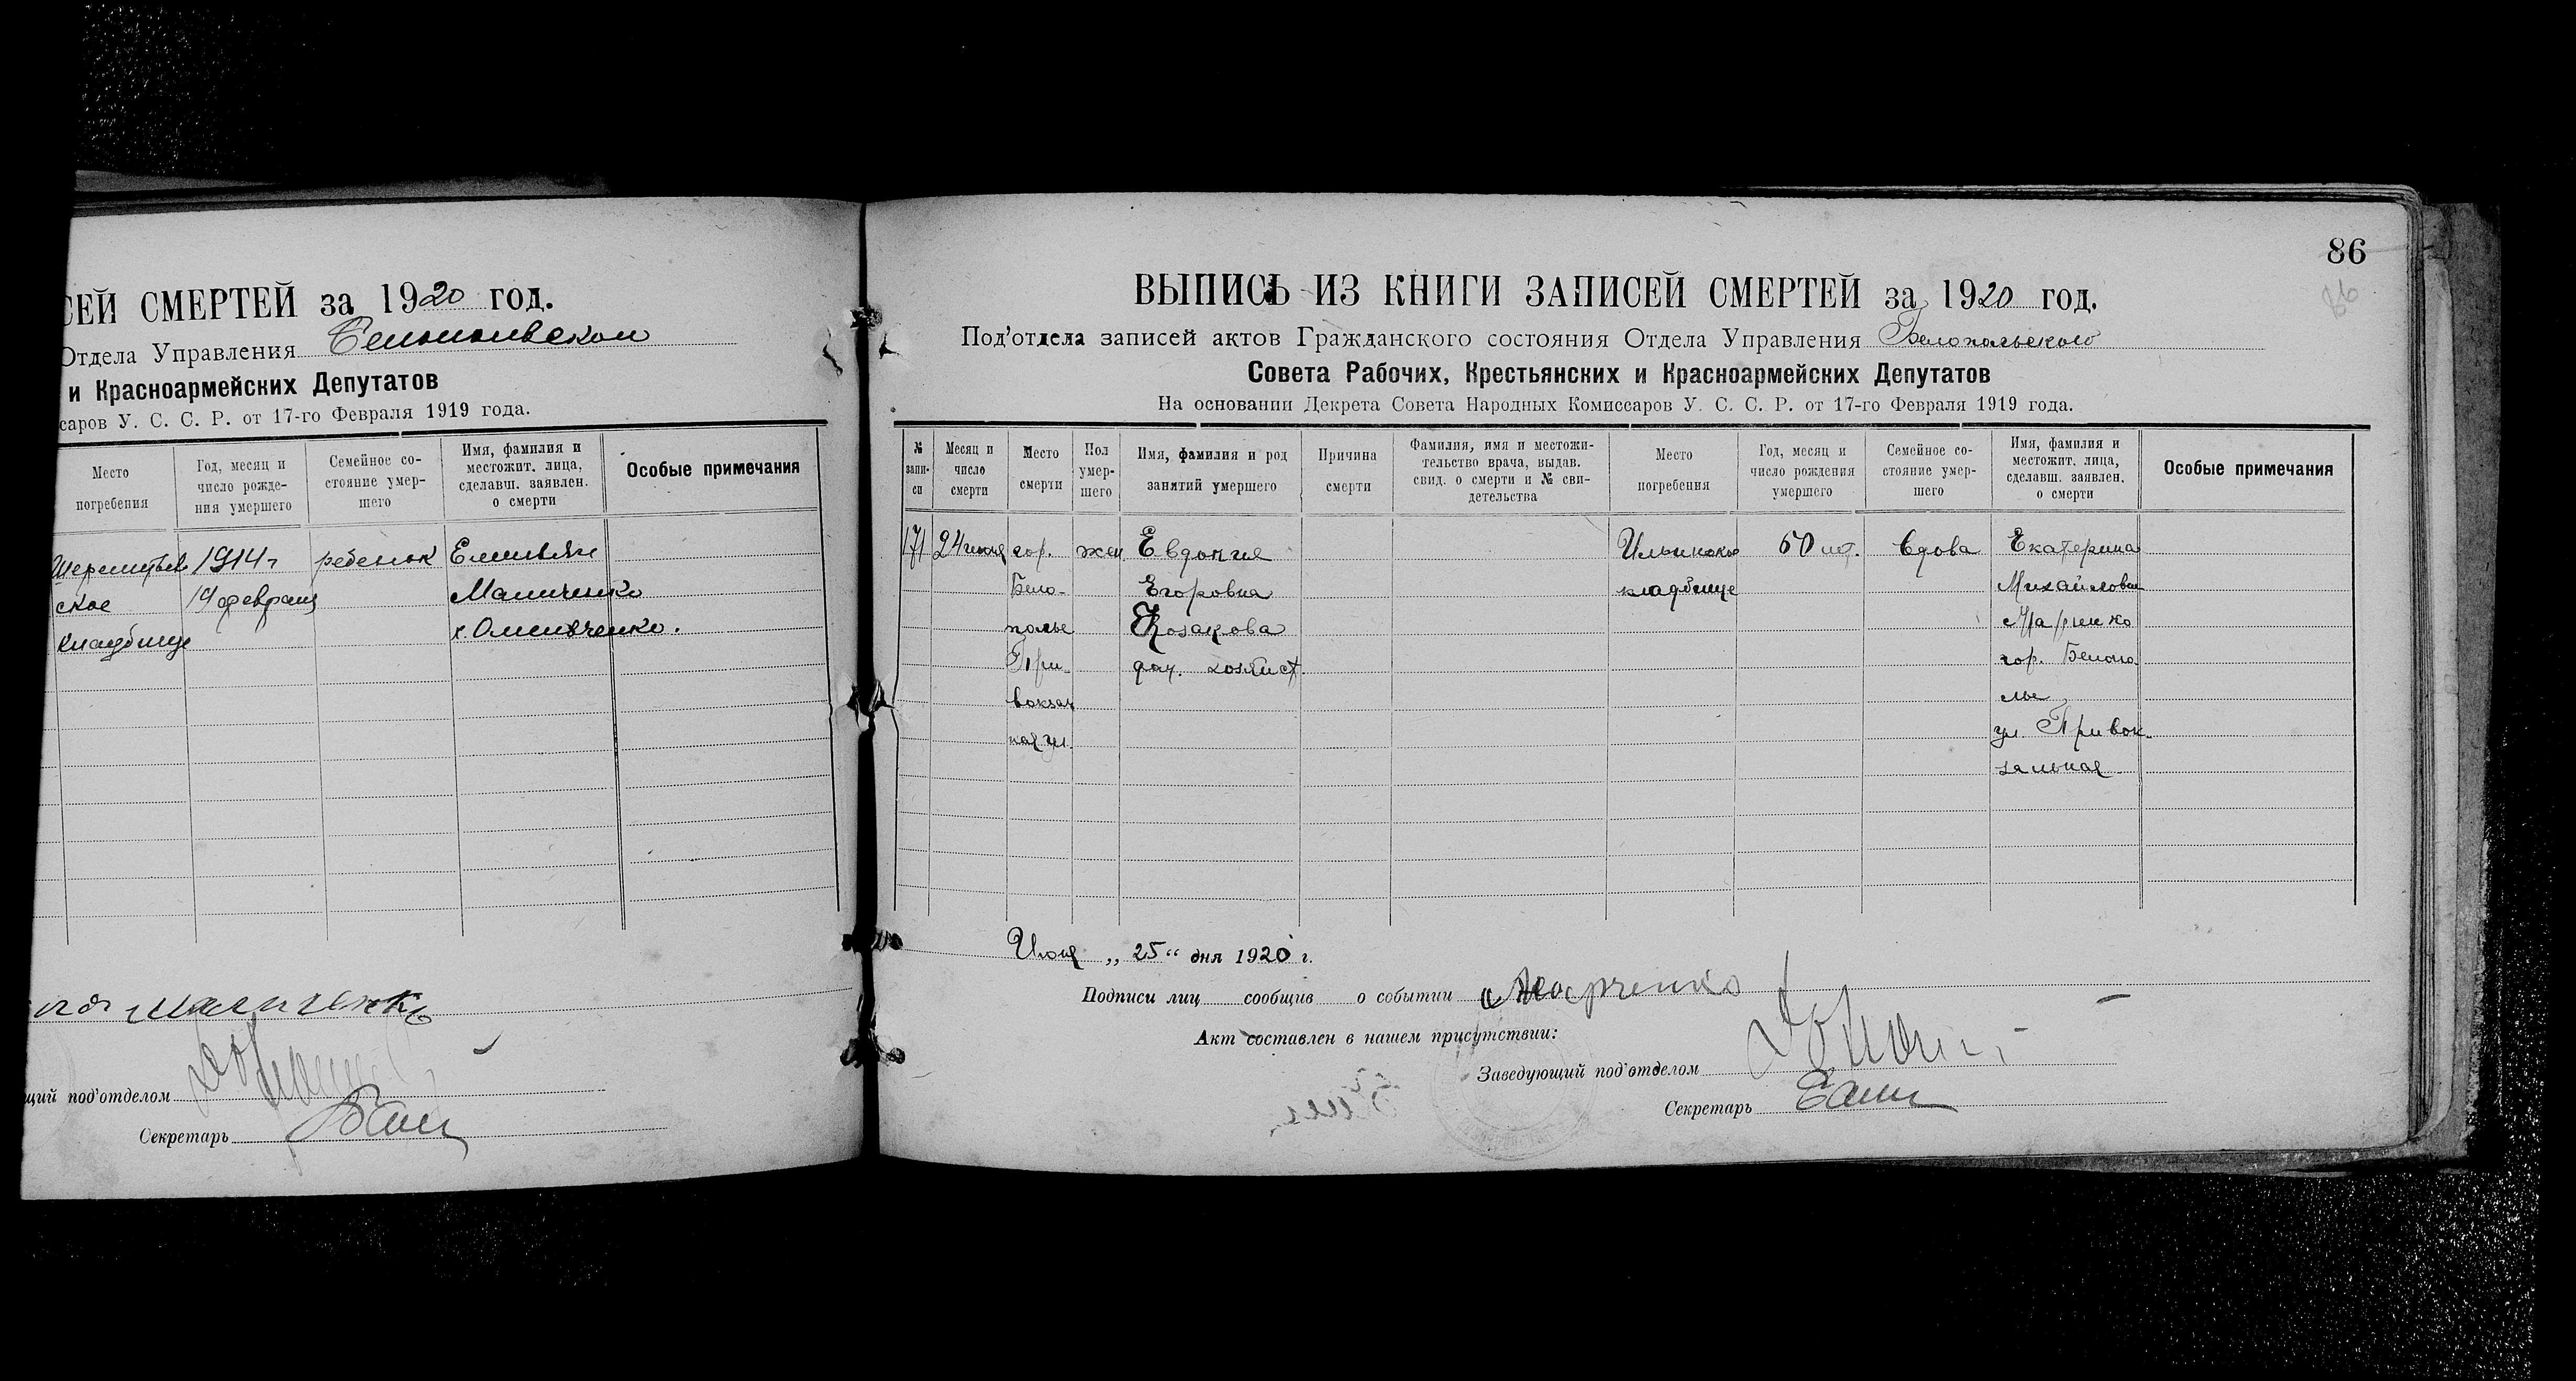 СЕЙ СМЕРТЕЙ за 1920 год.
Отдела Управления
и Красноармейских Депутатов
саров У. С. С. Р. от 17-го Февраля 1919 года.
Место погребения
Год, месяц и число рожде-ния умершего
Семейное со-стояние умер-шего
Имя, фамилия и местожит. лица, сделавш. заявлен. о смерти
Особые примечания
1914 г ребенок Емильян
ское 19 февраля
кладбище
щий под'отделом
Секретарь
86
86
ВЫПИСЬ ИЗ КНИГИ ЗАПИСЕЙ СМЕРТЕЙ за 1920 год.
Под'отдела записей актов Гражданского состояния Отдела Управления Белопольского
Совета Рабочих, Крестьянских и Красноармейских Депутатов
На основании Декрета Совета Народных Комиссаров У. С. С. Р. от 17-го Февраля 1919 года.
№ запи-си
Месяц и число смерти
Место смерти
Пол умер-шего
Имя, фамилия и род занятий умершего
Причина смерти
Фамилия, имя и местожи-тельство врача, выдав. свид. о смерти и № сви-детельства
Место погребения
Год, месяц и число рождения умершего
Семейное со-стояние умер-шего
Имя, фамилия и местожит. лица, сделавш. заявлен. о смерти
Особые примечания
171 24 гор. жен Евдокия Ильинское 60 лет. вдова Екатерина
Бело- Егоровна кладбище Михайловна
полье Козакова
При- гор. Белопо
вокзал лье
ная ул. ул Привок-
зальная
Июня „ 25 “ дня 1920 г.
Подписи лиц сообщив о событии Марченко
Акт составлен в нашем присутствии:
Заведующий под'отделом
Секретарь